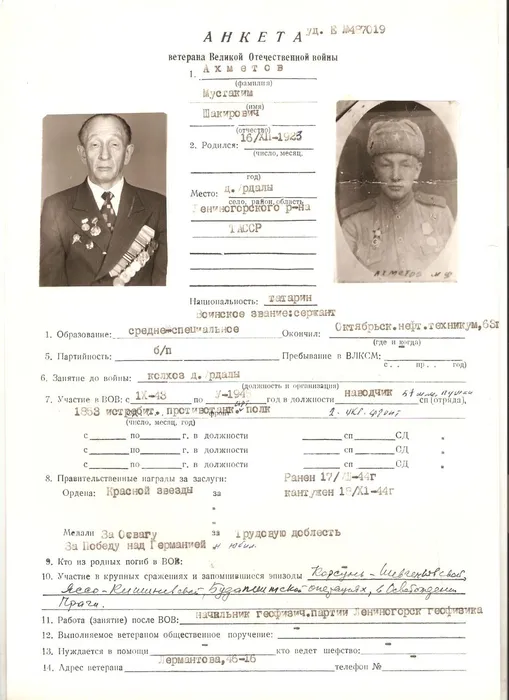 АНКЕТА уд. Е №487019
ветерана Великой Отечественной войны
1. Ахметов
(фамилия)
Мустаким
(имя)
Шакирович
(отчество)
2. Родился: 16/XII-1923
(число, месяц,
год)
Место: д. Урдалы
село, район, область
Лениногорского р-на
ТАССР
АХМЕТОВ М. Ш
Национальность: татарин
Воинское звание: сержант
1. Образование: средне-специальное Окончил: Октябрьск. нефт. техникум, 63г
(где и когда)
5. Партийность: б/п Пребывание в ВЛКСМ:
(с . . пр . . год)
6. Занятие до войны: колхоз д. Урдалы
(должность и организация)
7. Участие в ВОВ: с IX-43 по V-194 год в должности наводчик 57 мм пушки сп (отряда),
1853 истребит. противотанк. арт полк 2-укр. фронт
(число, месяц, год)
с по г. в должности сп СД
с по г. в должности сп СД
с по г. в должности сп СД
8. Правительственные награды за заслуги: Ранен 17/ -44г
Ордена: Красной звезды за контужен 18/XI-44г
"
"
Медали За Отвагу за Трудовую доблесть
За Победу над Германией и юбил.
9. Кто из родных погиб в ВОВ:
10. Участие в крупных сражениях и запомнившиеся эпизоды Корсунь-Шевченковской,
Ясско-Кишиневской, Будапештской операциях, в Освобождении
Праги.
11. Работа (занятие) после ВОВ: начальник геофизич. партии Лениногорск геофизика
12. Выполняемое ветераном общественное поручение: —
13. Нуждается в помощи — кто ведет шефство: —
14. Адрес ветерана Лермонтова, 45-16 телефон № —